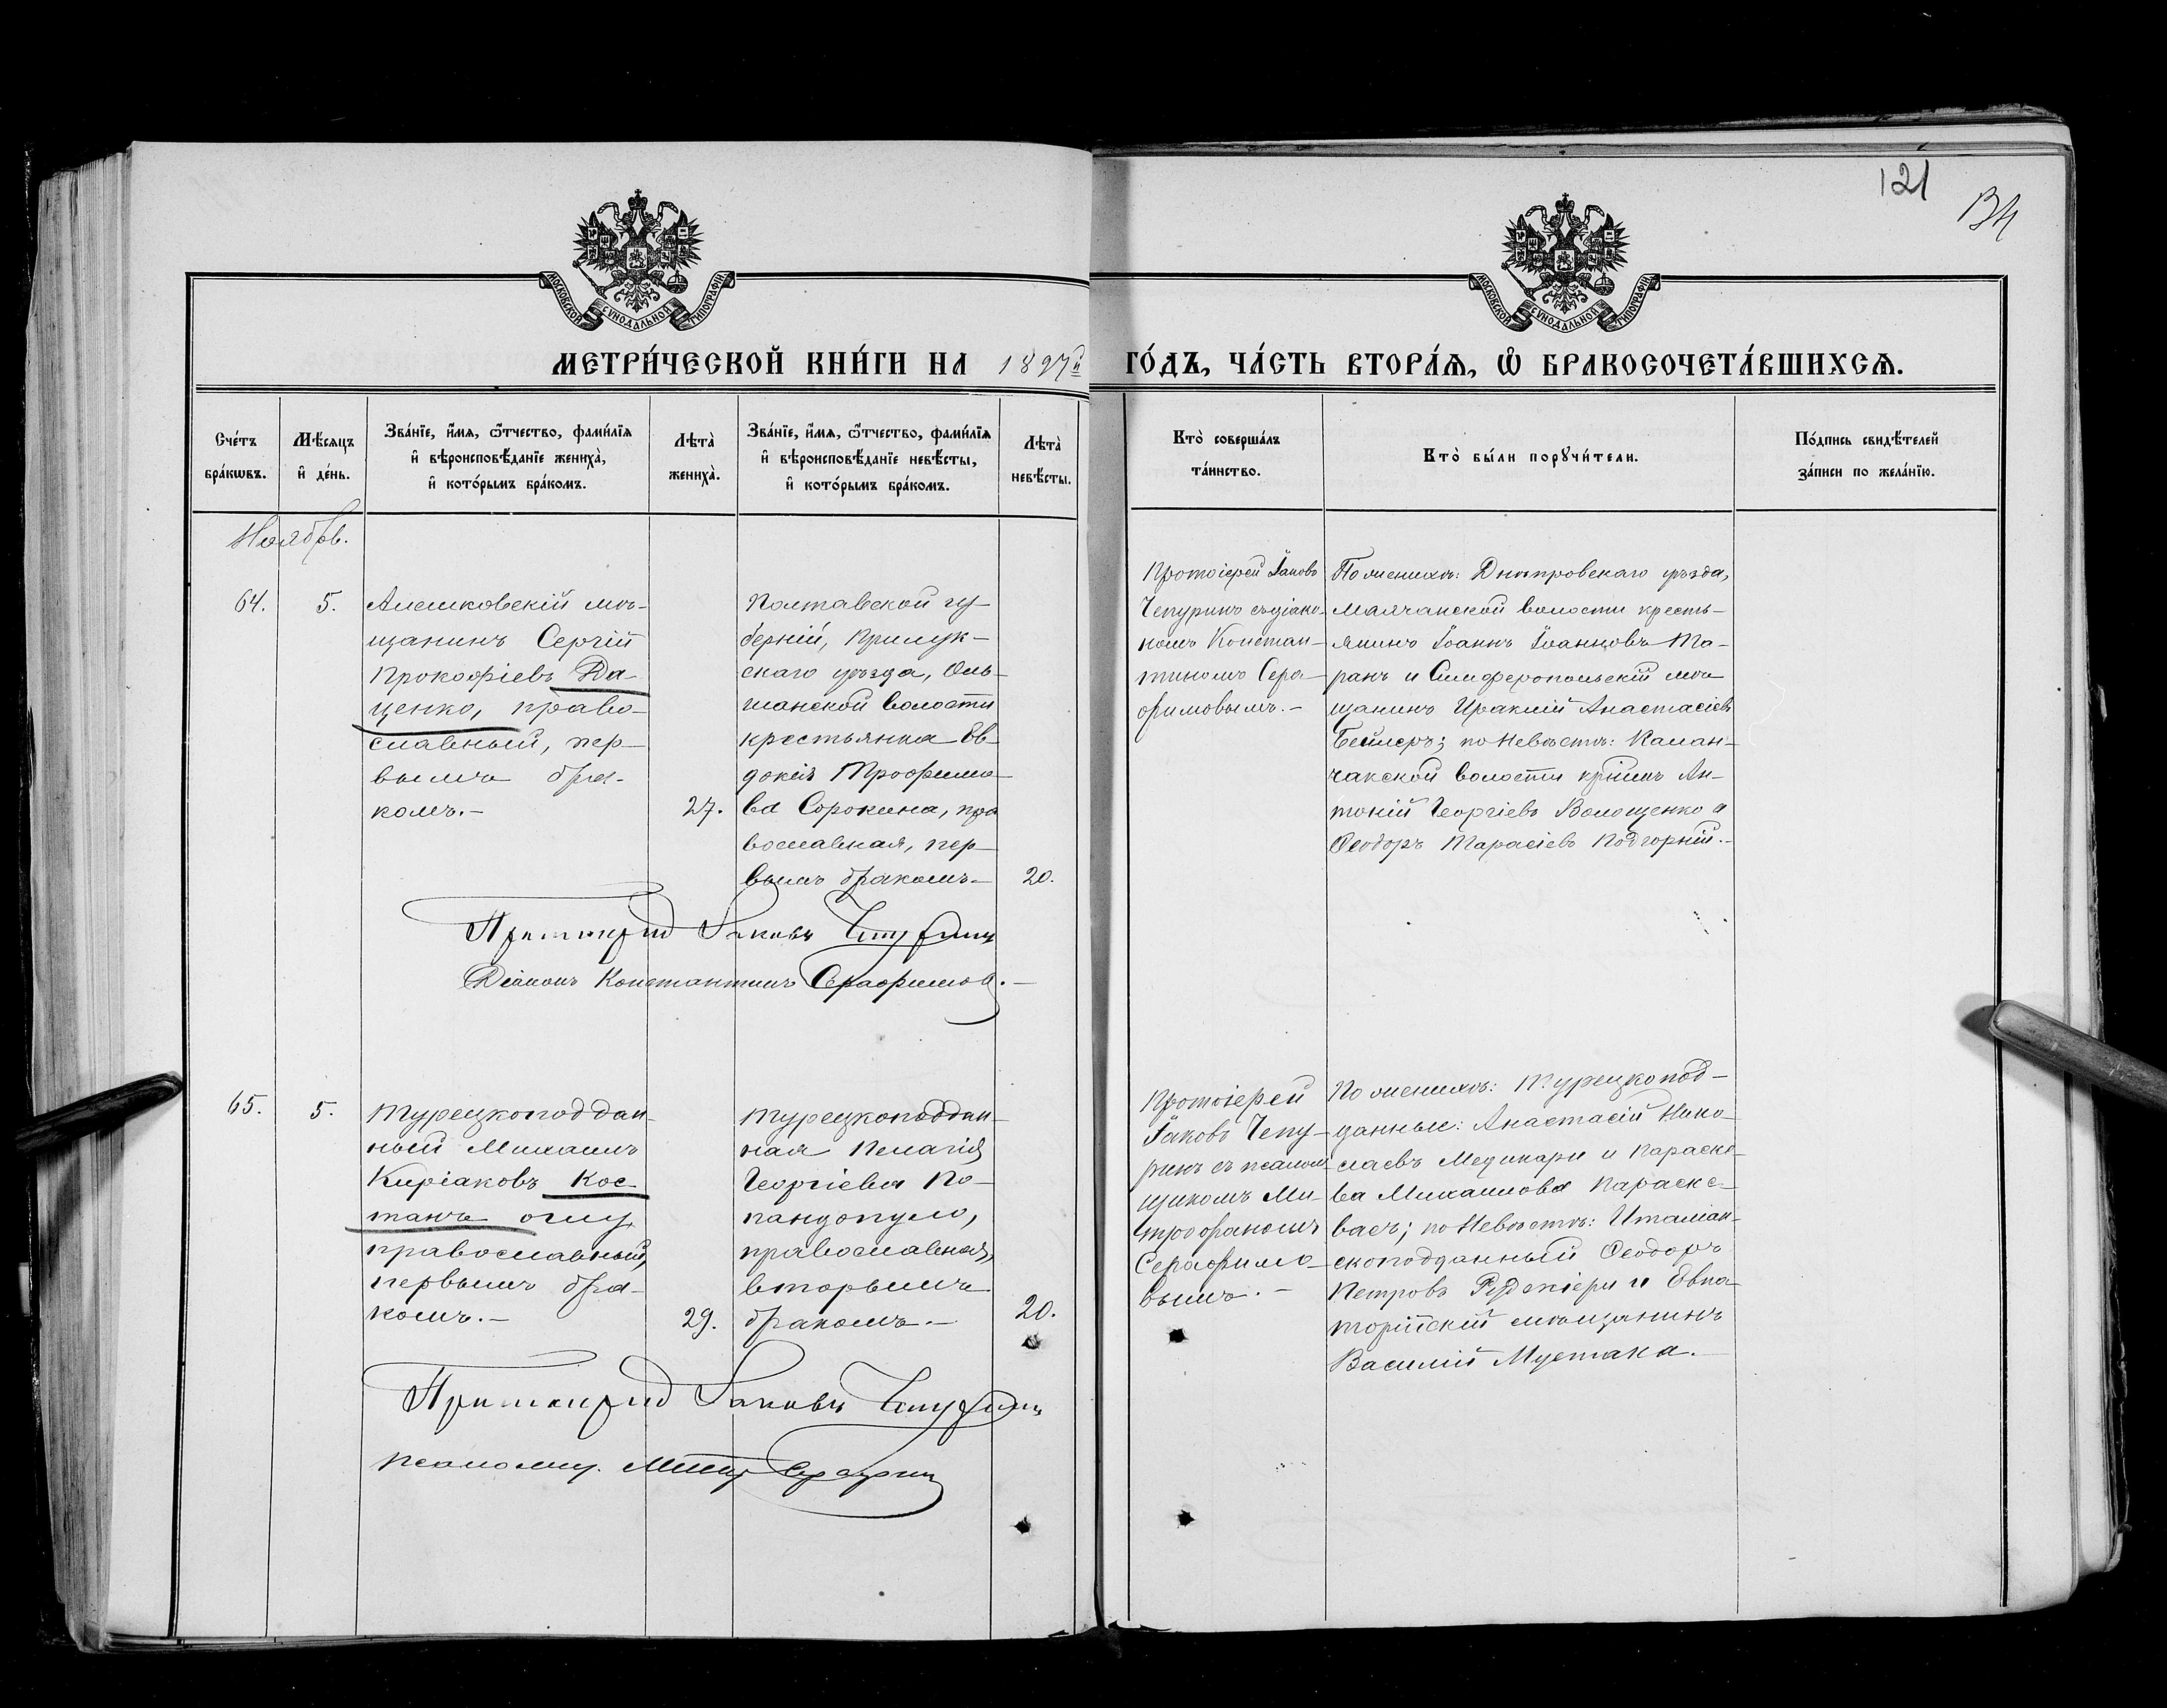 121
134
МОСКОВСКОЙ СУНОДАЛЬНОЙ ТИПОГРАФІИ
МОСКОВСКОЙ СУНОДАЛЬНОЙ ТИПОГРАФІИ
МЕТРИ́ЧЕСКОЙ КНИ́ГИ НА 1897й ГО́ДЪ, ЧА́СТЬ ВТОРА́Я, Ѡ БРАКОСОЧЕТА́ВШИХСѦ.
Сче́тъ
бра́кѡвъ.
Мѣ́сяцъ
и҆ де́нь.
Зва́нїе, и҆́мѧ, ѻ҆́тчество, фами́лїѧ
и҆ вѣроисповѣ́данїе жениха̀,
и҆ кото́рымъ бра́комъ.
Лѣта̀
жениха̀.
Зва́нїе, и҆́мѧ, ѻ҆́тчество, фами́лїѧ
и҆ вѣроисповѣ́данїе невѣ́сты,
и҆ кото́рымъ бра́комъ.
Лѣта̀
невѣ́сты.
Кто̀ соверша́лъ
та́инство.
Кто̀ бы́ли порꙋчи́тели.
По́дпись свидѣ́телей
за́писи по жела́нїю.
Ноябрь.
64.
5.
Алешковскій мѣ-
щанинъ Сергій
Прокофіевъ Да-
ценко, право-
славный, пер-
вымъ бра-
комъ.-
27.
Полтавской гу-
берніи, Прилук-
скаго уѣзда, Оль-
шанской волости
крестьянка Ев-
докія Трофимо-
ва Сорокина, пра
вославная, пер-
вымъ бракомъ-
20.
Протоіерей Іаковъ
Чепуринъ съ діако-
номъ Констан-
тиномъ Сера-
фимовымъ.-
По женихѣ: Днѣпровскаго уѣзда,
Маячанской волости кресть-
янинъ Іоаннъ Іоанновъ Та-
ранъ и Симферопольскій мѣ
щанинъ Ираклій Анастасіевъ
Бейлеръ; по невѣстѣ: Калан-
чакской волости крнинъ Ан-
тоній Георгіевъ Волощенко и
Ѳеодоръ Тарасіевъ Подгорній.-
Протоіерей Іаковъ Чепуринъ
Діаконъ Константинъ Серафимов.-
65.
5.
Турецкоподдан-
ный Михаилъ
Киріаковъ Кос-
танъ оглу,
православный,
первымъ бра-
комъ.-
29.
Турецкоподдан-
ная Пелагія
Георгіева По-
пандопуло,
православная,
вторымъ
бракомъ.-
20.
Протоіерей
Іаковъ Чепу-
ринъ съ псалом
щикомъ Ми-
трофаномъ
Серафимо-
вымъ.-
По женихѣ: Турецкопод-
данные: Анастасій Нико-
лаевъ Медикари и Параске-
ва Михаилова Параске-
васъ; по невѣстѣ: Италіан-
скоподданный Ѳеодоръ
Петровъ Руджіери и Евпа-
торійскій мѣщанинъ
Василій Мустака.-
Протоіерей Іаковъ Чепуринъ
Псаломщ. Митр Серафим